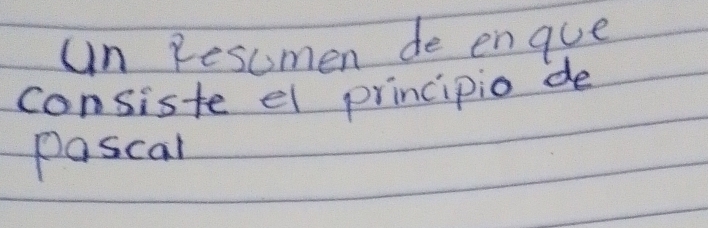 Un Resumen de en que
consiste el principio de
pascal